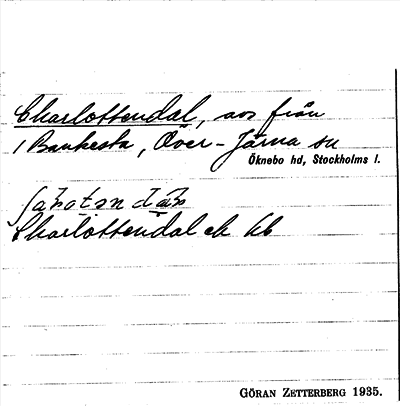 Charlottendal, avs från
1 Bankesta, Över-Järna sn
Öknebo hd, Stockholms l.
Charlottendal ek hb
GÖRAN ZETTERBERG 1935.